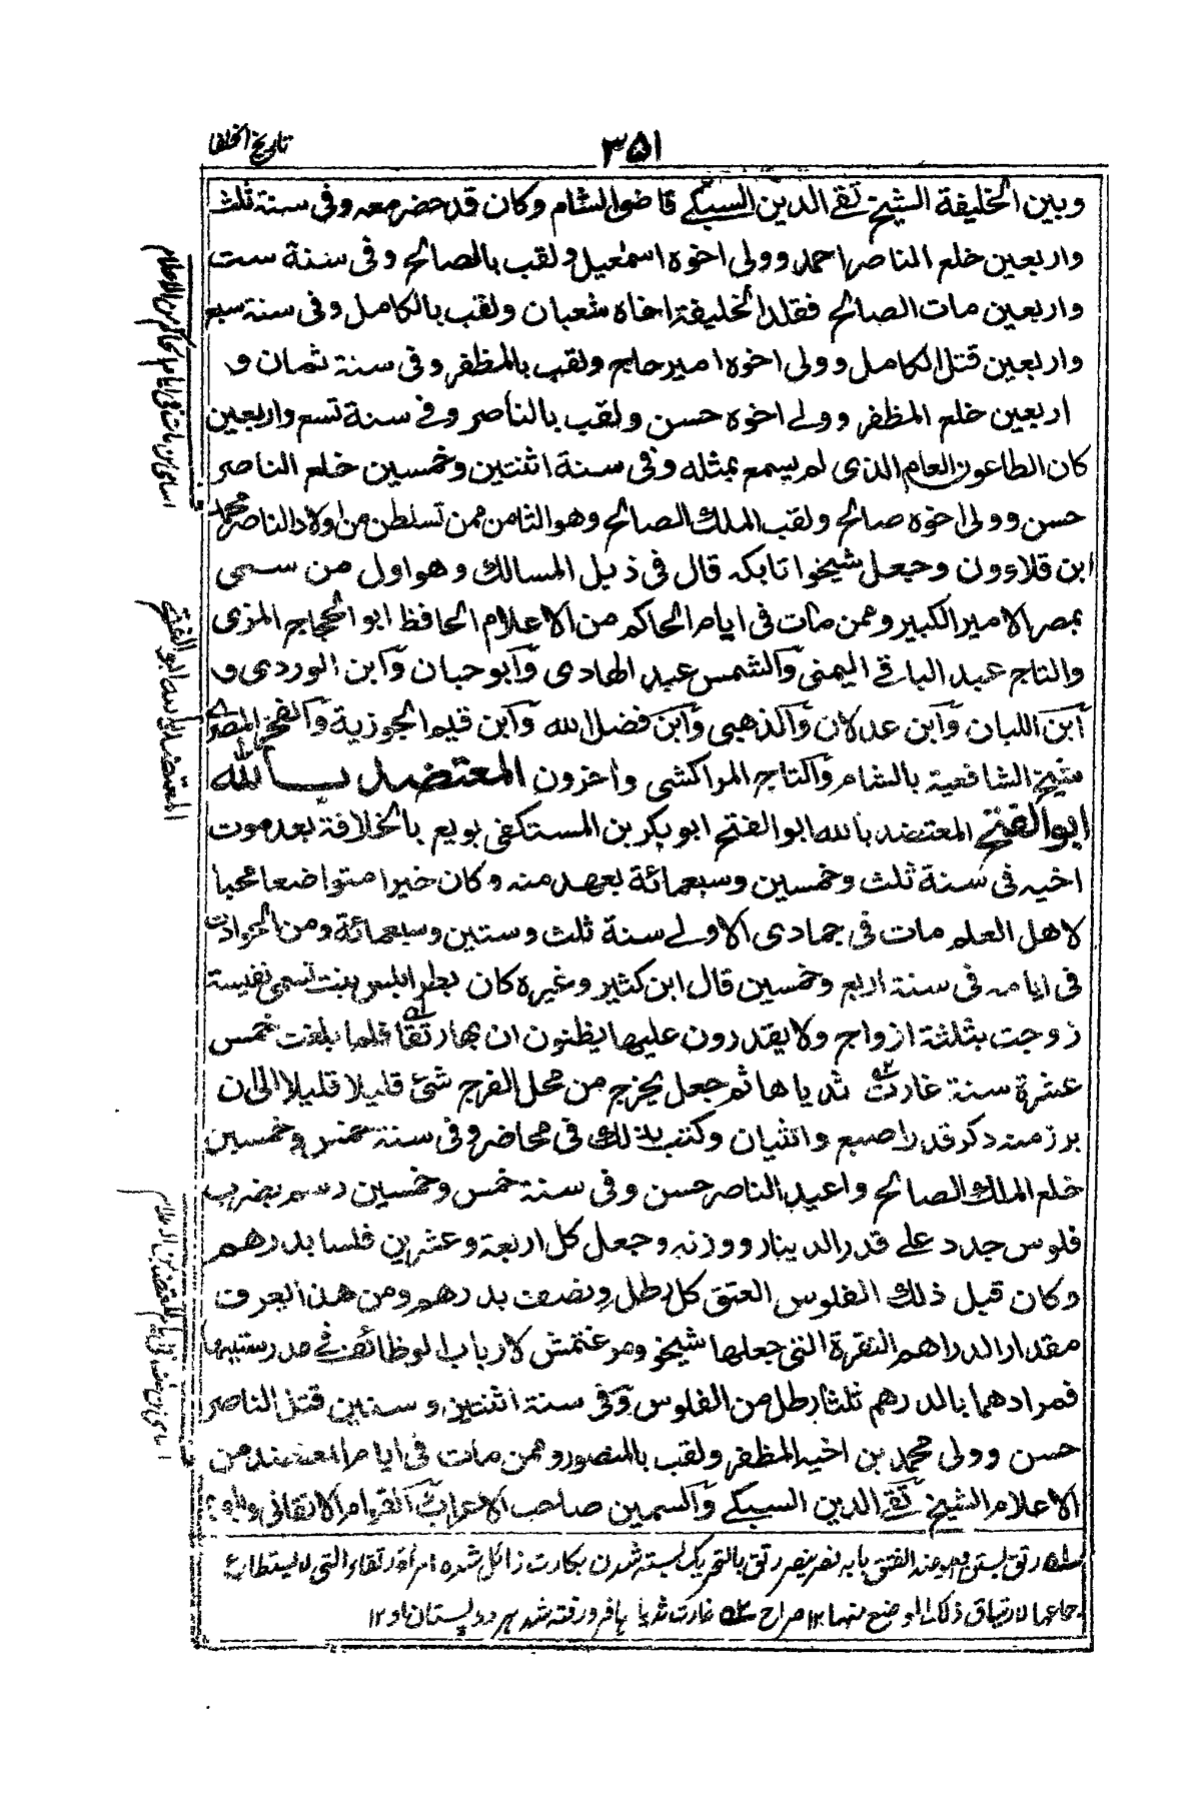 تاريخ الخلفا
٣٥١
وبين الخليفة الشيخ تقى الدين السبكے قاضى الشام وكان قد حضر معه وفى سنة ثلث
واربعين خلع الناصر احمد وولى اخوه اسمٰعيل ولقب بالصالح وفى سنة ست
واربعين مات الصالح فقلد الخليفة اخاه شعبان ولقب بالكامل وفى سنة سبع
واربعين قتل الكامل وولى اخوه امير حاج ولقب بالمظفر وفى سنة ثمان و
اربعين خلع المظفر وولے اخوه حسن ولقب بالناصر وفے سنة تسع واربعين
كان الطاعون العام الذى لم يسمع بمثله وفى سنة اثنتين وخمسين خلع الناصر
حسن وولى اخوه صالح ولقب الملك الصالح وهو الثامن ممن تسلطن من اولاد الناصر محمد
ابن قلاوون وجعل شيخو اتابكه قال فى ذيل المسالك وهو اول من سمى
بمصر الامير الكبير وممن مات فى ايام الحاكم من الاعلام الحافظ ابو الحجاج المزى
والتاج عبد الباقے اليمنى والشمس عبد الهادى وابو حيان وابن الوردى و
ابن اللبان وابن عدلان والذهبى وابن فضل الله وابن قيم الجوزية والفخر المصرى
شيخ الشافعية بالشام والتاج المراكشى واخرون المعتضد بالله
ابو الفتح المعتضد بالله ابو الفتح ابو بكر بن المستكفى بويع بالخلافة بعد موت
اخيه فى سنة ثلث وخمسين وسبعمائة بعهد منه وكان خيرا متواضعا محبا
لاهل العلم مات فى جمادى الاولے سنة ثلث وستين وسبعمائة ومن الحوادث
فى ايامه فى سنة اربع وخمسين قال ابن كثير وغيره كان بطرابلس بنت تسمى نفيسة
زوجت بثلثة ازواج ولا يقدرون عليها يظنون ان بها رتقا فلما بلغت خمس
عشرة سنة غارت ثدياها ثم جعل يخرج من محل الفرج شئ قليلا قليلا الى ان
برز منه ذكر قدر اصبع وانثيان وكتب بذلك فى محاضر وفى سنة خمس وخمسين
خلع الملك الصالح واعيد الناصر حسن وفى سنة خمس وخمسين رسم بضرب
فلوس جدد علے قدر الدينار ووزنه وجعل كل اربعة وعشرين فلسا بدرهم
وكان قبل ذلك الفلوس العتق كل رطل ونصف بدرهم ومن هذا يعرف
مقدار الدراهم النقرة التى جعلها شيخو وصرغتمش لارباب الوظائف فے مدرستيهما
فمرادهما بالدرهم ثلثا رطل من الفلوس وفى سنة اثنتين وستين قتل الناصر
حسن وولى محمد بن اخيه المظفر ولقب بالمنصور وممن مات فى ايام المعتضد من
الاعلام الشيخ تقے الدين السبكے والسمين صاحب الاعراب والقوام الاتقانى
اسامى من مات فى ايام الحاكم من الاعلام
المعتضد بالله ابو الفتح
رتق بستن وهو ضد الفتق بابه نصر ينصر رتق بالتحريك بسته شدن بكارت زائل شده امراة رتقاء التى لا يستطاع
جماعها لارتتاق ذلك الموضع منها ١٢ صراح غارت ثدياها فرو رفته شد هر دو پستان او ١٢